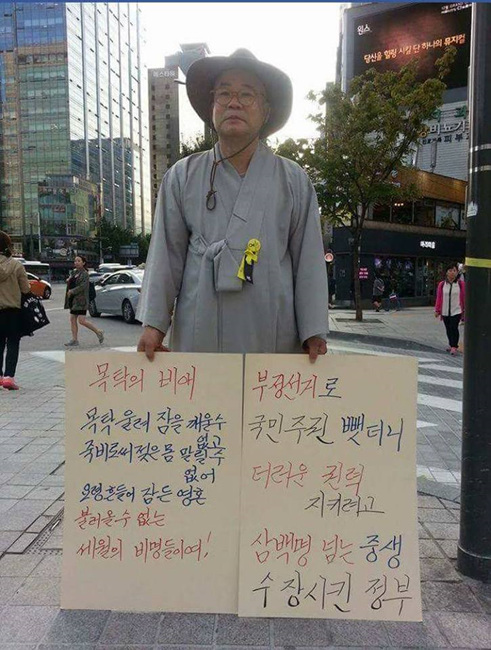 윈스
당신을 힐링 시킬 단 하나의 뮤지컬
목탁의 비애
목탁 울려 잠을 깨울수
없고
죽비로써 젖은 몸 말릴 수
없어
요령흔들어 잠든 영혼
불러올 수 없는
세월의 비명들이여!
부정선거로
국민주권 뺏더니
더러운 권력
지키려고
삼백명 넘는 중생
수장시킨 정부